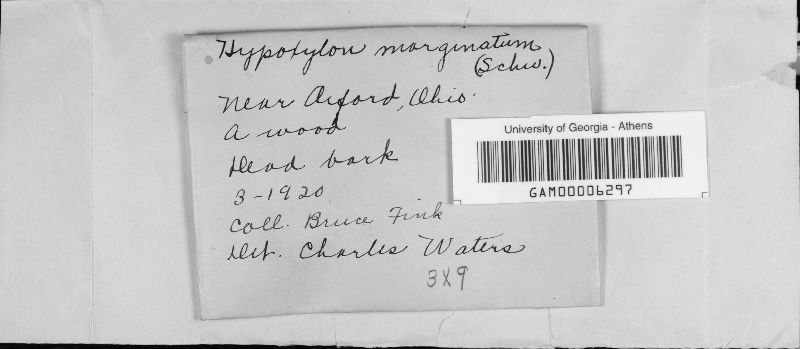 Hypoxylon marginatum
(Schw.)
Near Oxford, Ohio.
A wood
Dead bark
3-1920
Coll. Bruce Fink
Det. Charles Waters
3X9
University of Georgia - Athens
GAM00006297